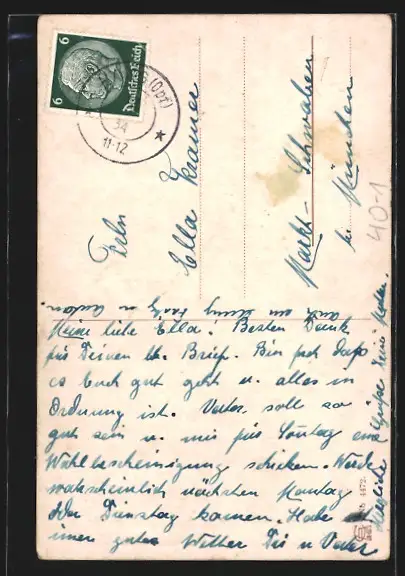 6 6
Deutsches Reich
(Opf)
34
11-12
Frln
Ella Kramer
Markt-Schwaben
bei München
40-1
Meine liebe Ella! Besten Dank
für Deinen lb. Brief. Bin froh daß
es Euch gut geht u. alles in
Ordnung ist. Vater soll so
gut sein u. mir für Sonntag eine
Wahlbescheinigung schicken. Werde
wahrscheinlich nächsten Montag
oder Dienstag kommen. Habe
immer gutes Wetter Dir u Vater
Herzliche Grüße Deine
auch an u Anton.
4472